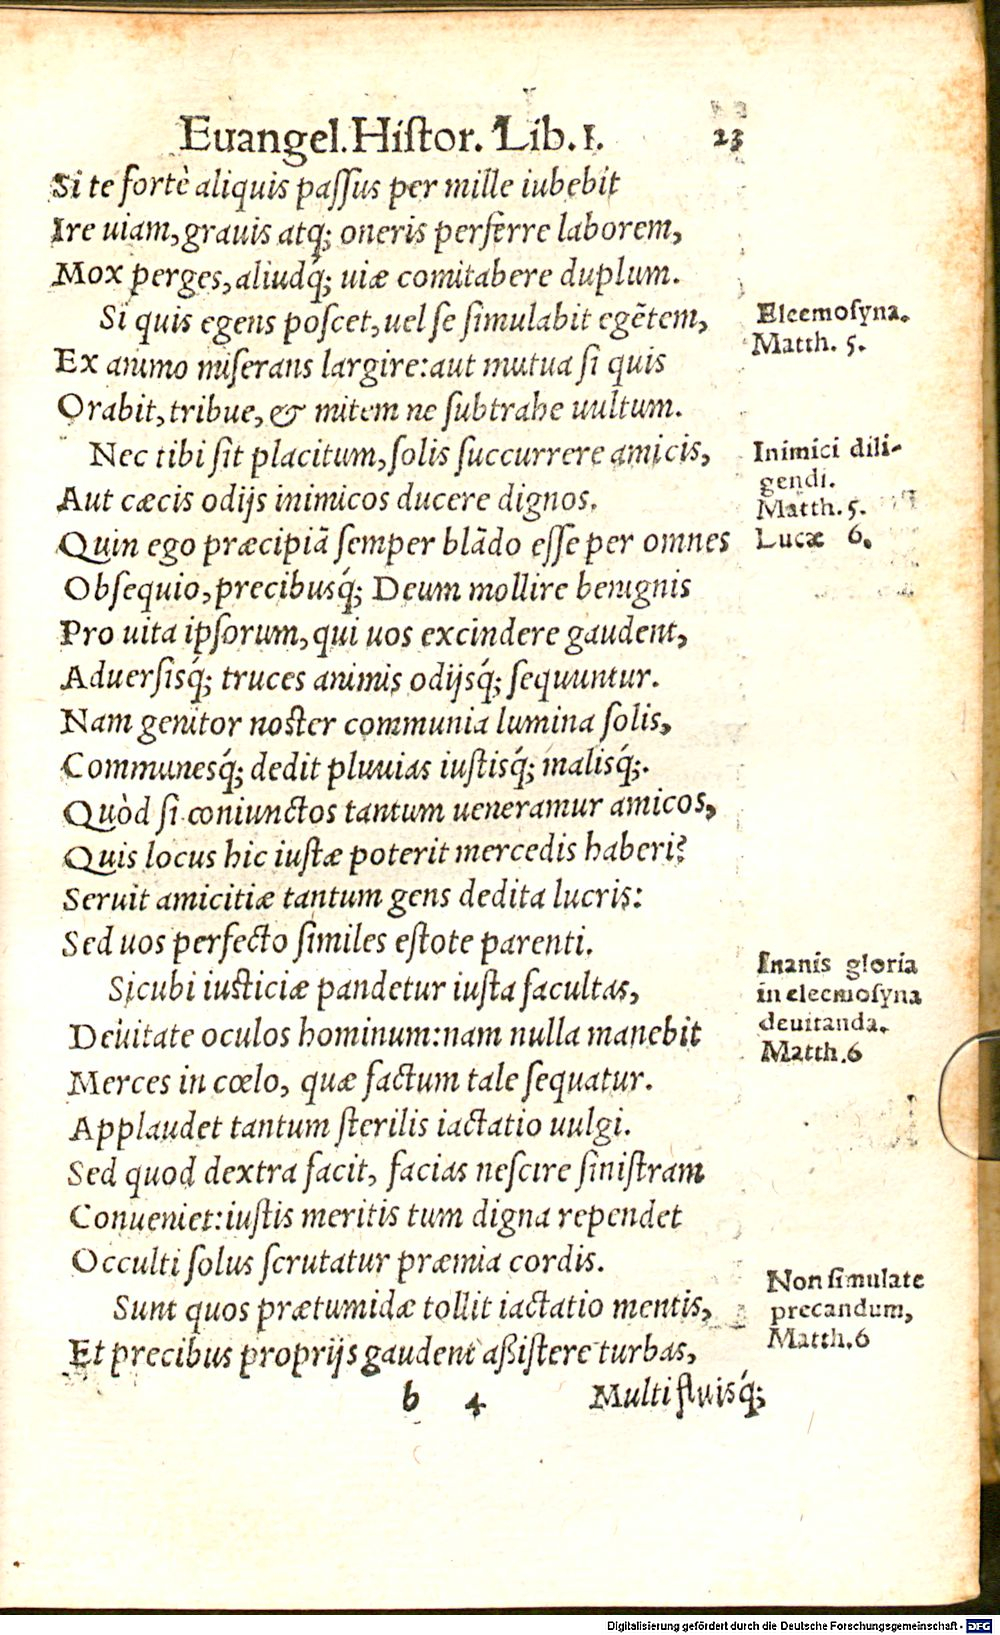 Euangel. Histor. Lib. I. 23
Si te fortè aliquis passus per mille iubebit
Ire uiam, grauis atq; oneris perferre laborem,
Mox perges, aliudq́; uiæ comitabere duplum.
Si quis egens poscet, uel se simulabit egẽtem,
Ex animo miserans largire: aut mutua si quis
Orabit, tribue, & mitem ne subtrahe uultum.
Nec tibi sit placitum, solis succurrere amicis,
Aut cæcis odijs inimicos ducere dignos.
Quin ego præcipiã semper blãdo esse per omnes
Obsequio, precibusq́; Deum mollire benignis
Pro uita ipsorum, qui uos excindere gaudent,
Aduersisq́; truces animis odijsq́; sequuntur.
Nam genitor noster communia lumina solis,
Communesq́; dedit pluuias iustisq́; malisq́;.
Quòd si coniunctos tantum ueneramur amicos,
Quis locus hic iustæ poterit mercedis haberi?
Seruit amicitiæ tantum gens dedita lucris:
Sed uos perfecto similes estote parenti.
Sicubi iusticiæ pandetur iusta facultas,
Deuitate oculos hominum: nam nulla manebit
Merces in cœlo, quæ factum tale sequatur.
Applaudet tantum sterilis iactatio uulgi.
Sed quod dextra facit, facias nescire sinistram
Conueniet: iustis meritis tum digna rependet
Occulti solus scrutatur præmia cordis.
Sunt quos prætumidæ tollit iactatio mentis,
Et precibus proprijs gaudent assistere turbas,
b 4 Multifluisq́;
Eleemosyna.
Matth. 5.
Inimici dili-
gendi.
Matth. 5.
Lucæ 6.
Inanis gloria
in eleemosyna
deuitanda.
Matth. 6
Non simulate
precandum,
Matth. 6
Digitalisierung gefördert durch die Deutsche Forschungsgemeinschaft - DFG